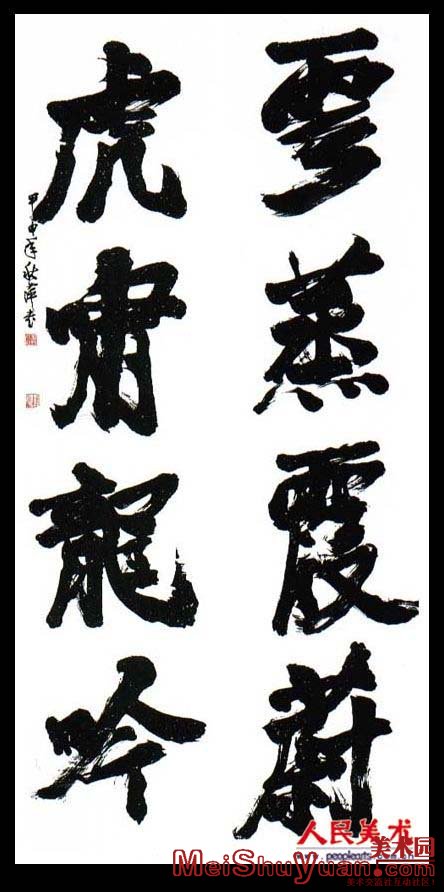 雲蒸霞蔚
虎嘯龍吟
甲申年秋萍书
人民美术
peoplearts
美术园
MeiShuYuan.com